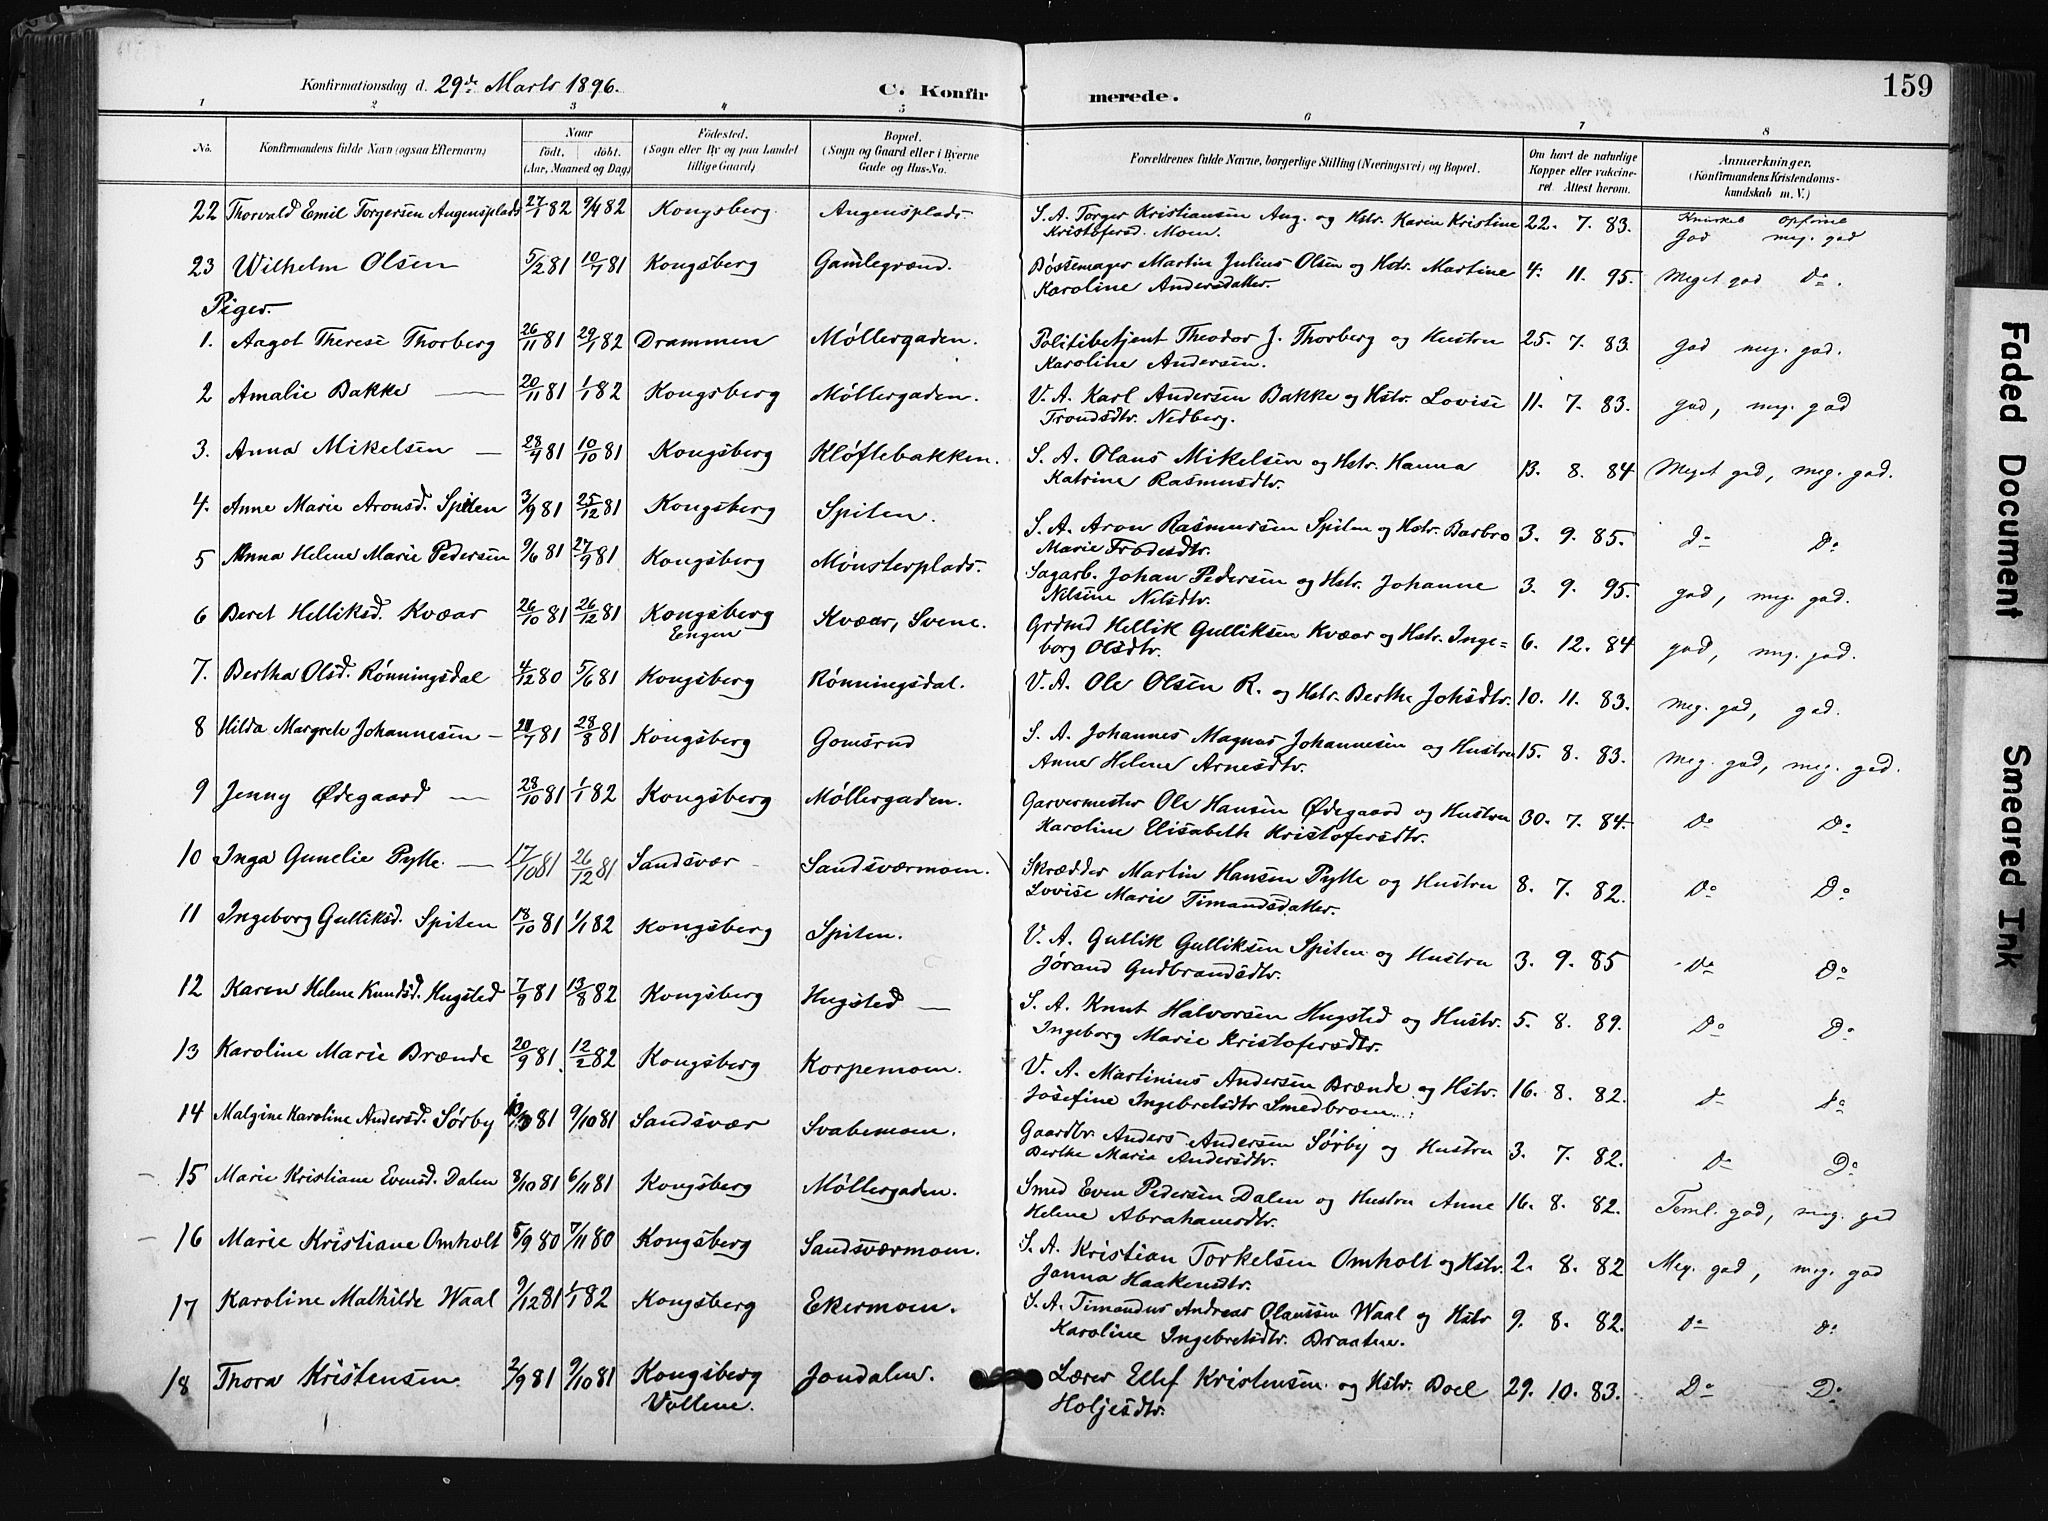 Konfirmationsdag d. 29de Marts 1896.
C. Konfirmerede.
159
1 2 3 4 5 6 7 8
No.
Konfirmandens fulde Navn (ogsaa Efternavn)
Naar
födt. döbt.
(Aar, Maaned og Dag)
Födested.
(Sogn eller By og paa Landet
tillige Gaard)
Bopæl.
(Sogn og Gaard eller i Byerne
Gade og Hus-No.
Forældrenes fulde Navne, borgerlige Stilling (Næringsvei) og Bopæl.
Om havt de naturlige
Kopper eller vakcine-
ret. Attest herom.
Anmærkninger.
(Konfirmandens Kristendoms-
kundskab m. V.)
22 Thorvald Emil Torgersen Augensplads 27/1 82 9/4 82 Kongsberg. Augensplads. S. A. Torger Kristiansen Aug. og Hstr. Karen Kristine 22. 7. 83. Kundskab Opførsel
Kristofersd. Moen. God meg. god
23 Wilhelm Olsen 5/2 81 10/7 81 Kongsberg Gamlegrænd. Bøssemager Martin Julius Olsen og Hstr. Martine 4. 11. 95. Meget god Do.
Karoline Andersdatter.
Piger.
1. Aagot Therese Thorberg 26/11 81 29/1 82 Drammen Møllergaden. Politibetjent Theodor J. Thorberg og Hustru 25. 7. 83 god meg. god.
Karoline Andersen.
2 Amalie Bakke 20/11 81 1/1 82 Kongsberg Møllergaden. V. A. Karl Andersen Bakke og Hstr. Lovise 11. 7. 83. god, meg. god
Trondsdtr. Nedberg.
3. Anna Mikelsen 28/4 81 10/10 81 Kongsberg Kløftebakken. S. A. Olaus Mikelsen og Hstr. Hanna 13. 8. 84 Meget god, meg. god.
Katrine Rasmusdtr.
4. Anne Marie Aronsd. Spiten 3/9 81 25/12 81 Kongsberg Spiten. S. A. Aron Rasmussen Spiten og Hstr. Barbro 3. 9. 85. do Do
Marie Frodesdtr.
5 Anna Helene Marie Pedersen 9/6 81 27/9 81 Kongsberg Mønsterplads. Sagarb. Johan Pedersen og Hstr. Johanne 3. 9. 95. god, meg. god.
Nelsine Nelsdtr.
6 Beret Helliksd. Kvæar 26/10 81 26/12 81 Kongsberg Kvæar, Svene. Grdmd Hellik Gulliksen Kvæar og Hstr. Inge= 6. 12. 84 god, meg. god.
Engen borg Olsdtr.
7. Bertha Olsd. Rønningsdal 4/12 80 5/6 81 Kongsberg Rønningsdal. V. A. Ole Olsen R. og Hstr. Berthe Johsdtr. 10. 11. 83. meg. god, god.
8 Hilda Margrete Johannesen 21/7 81 28/8 81 Kongsberg Gomsrud S. A. Johannes Magnus Johannesen og Hustru 15. 8. 83. meg. god, meg. god.
Anne Helene Arnesdtr.
9 Jenny Ødegaard 28/10 81 1/1 82 Kongsberg Møllergaden. Garvermester Ole Hansen Ødegaard og Hustru 30. 7. 84. Do Do
Karoline Elisabeth Kristofersdtr.
10 Inga Gunelie Pytte. 17/10 81 26/12 81 Sandsvær Sandsværmoen. Skrædder Martin Hansen Pytte og Hustru 8. 7. 82. Do Do
Lovise Marie Timandsdatter.
11 Ingeborg Gulliksd. Spiten 18/10 81 1/1 82 Kongsberg Spiten. V. A. Gullik Gulliksen Spiten og Hustru 3. 9. 85 Do Do
Jørand Gudbrandsdtr.
12 Karen Helene Knudsd. Hugsted 7/9 81 13/8 82 Kongsberg Hugsted S. A. Knut Halvorsen Hugsted og Hustr. 5. 8. 89. Do Do
Ingeborg Marie Kristofersdtr.
13 Karoline Marie Brænde 20/9 81. 12/2 82 Kongsberg Korpemoen. V. A. Martinius Andersen Brænde og Hstr. 16. 8. 82. Do Do
Josefine Ingebretsdtr Smedbroen.
14 Malgine Karoline Andersd. Sørby 81 9/10 81 Sandsvær Svabemoen. Gaardbr. Anders Andersen Sørby og Hustru 3. 7. 82. Do Do
Berthe Marie Andersdtr.
15 Marie Kristiane Evensd. Dalen 3/10 81 6/11 81 Kongsberg Møllergaden. Smed Even Pedersen Dalen og Hustru Anne 16. 8. 82. Teml. god, meg. god
Helene Abrahamsdtr.
16 Marie Kristiane Omholt 5/9 80 7/11 80 Kongsberg Sandsværmoen. S. A. Kristian Torkelsen Omholt og Hstr. 2. 8. 82 Meg. god, meg. god
Janna Haakensdtr.
17 Karoline Mathilde Waal 9/12 81 1/1 82 Kongsberg Ekermoen. S. A. Timandus Andreas Olaussen Waal og Hstr 9. 8. 82. Do Do
Karoline Ingebretsdtr. Braaten.
18 Thora Kristensen. 2/9 81 9/10 81 Kongsberg Jondalen. Lærer Ellef Kristensen og Hstr. Boel 29. 10. 83. Do Do
Vollene. Holjesdtr.
Faded Document
Smeared Ink